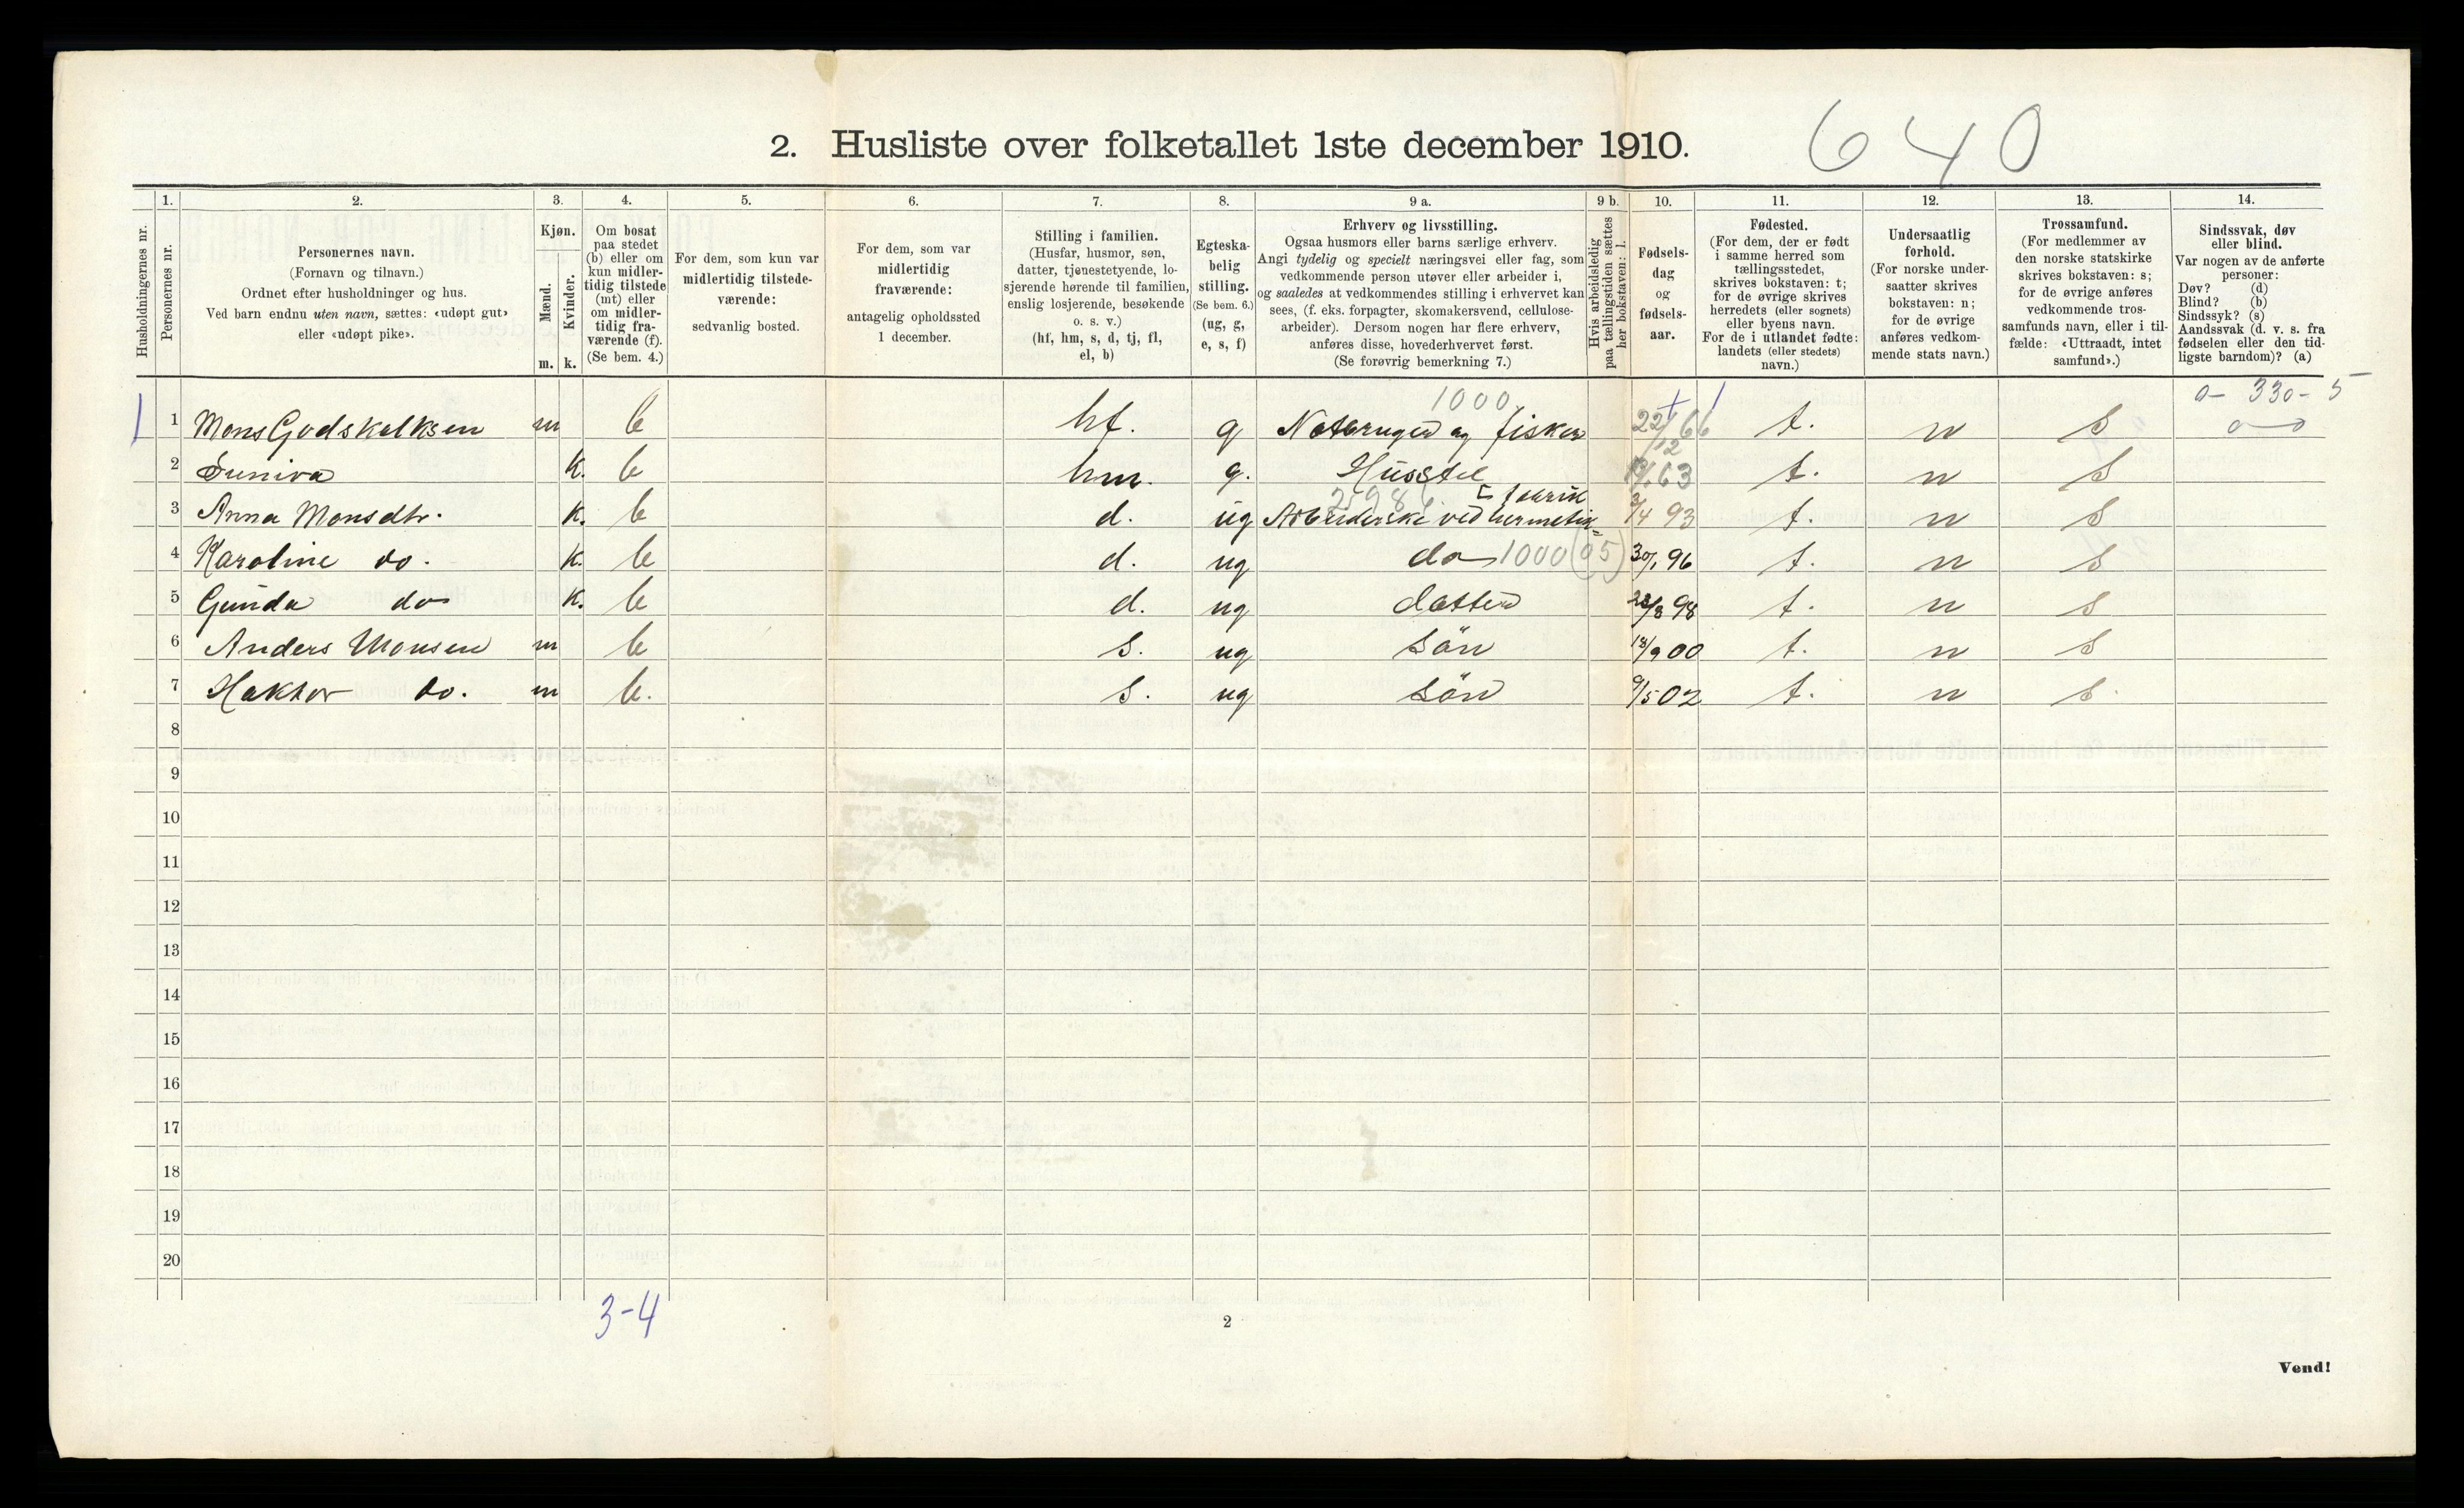 2. Husliste over folketallet 1ste december 1910.
640
Husholdningernes nr.
1.
Personernes nr.
2.
Personernes navn.
(Fornavn og tilnavn.)
Ordnet efter husholdninger og hus.
Ved barn endnu uten navn, sættes: «udøpt gut»
eller «udøpt pike».
3.
Kjøn.
Mænd.
Kvinder.
m. k.
4.
Om bosat
paa stedet
(b) eller om
kun midler-
tidig tilstede
(mt) eller
om midler-
tidig fra-
værende (f).
(Se bem. 4.)
5.
For dem, som kun var
midlertidig tilstede-
værende:
sedvanlig bosted.
6.
For dem, som var
midlertidig
fraværende:
antagelig opholdssted
1 december.
7.
Stilling i familien.
(Husfar, husmor, søn,
datter, tjenestetyende, lo-
sjerende hørende til familien,
enslig losjerende, besøkende
o. s. v.)
(hf, hm, s, d, tj, fl,
el, b)
8.
Egteska-
belig
stilling.
(Se bem. 6.)
(ug, g,
e, s, f)
9 a.
Erhverv og livsstilling.
Ogsaa husmors eller barns særlige erhverv.
Angi tydelig og specielt næringsvei eller fag, som
vedkommende person utøver eller arbeider i,
og saaledes at vedkommendes stilling i erhvervet kan
sees, (f. eks. forpagter, skomakersvend, cellulose-
arbeider). Dersom nogen har flere erhverv,
anføres disse, hovederhvervet først.
(Se forøvrig bemerkning 7.)
9 b.
Hvis arbeidsledig
paa tællingstiden sættes
her bokstaven: l.
10.
Fødsels-
dag
og
fødsels-
aar.
11.
Fødested.
(For dem, der er født
i samme herred som
tællingsstedet,
skrives bokstaven: t;
for de øvrige skrives
herredets (eller sognets)
eller byens navn.
For de i utlandet fødte:
landets (eller stedets)
navn.)
12.
Undersaatlig
forhold.
(For norske under-
saatter skrives
bokstaven: n;
for de øvrige
anføres vedkom-
mende stats navn.)
13.
Trossamfund.
(For medlemmer av
den norske statskirke
skrives bokstaven: s;
for de øvrige anføres
vedkommende tros-
samfunds navn, eller i til-
fælde: «Uttraadt, intet
samfund».)
14.
Sindssvak, døv
eller blind.
Var nogen av de anførte
personer:
Døv? (d)
Blind? (b)
Sindssyk? (s)
Aandssvak (d. v. s. fra
fødselen eller den tid-
ligste barndom)? (a)
1000 0- 330- 5
1 1 Mons Godskalksen m b hf. g Notbruger og fisker 22/12 66 t. n s 0-0
2 Suniva k. b hm. g. Husstel 63 t. n s
3 Anna Monsdtr. k. b d. ug Arbeiderske ved hermetik- fabrik 3/4 93 t. n s
4 Karoline do. k. b d. ug do 1000 (05) 30/1 96 t. n s
5 Gunda do k. b d. ug datter 98 t. n s
6 Anders Monsen m b s. ug sön 18/9 00 t. n s
7 do. m b. s. ug sön 9/5 02 t. n s.
8
9
10
11
12
13
14
15
16
17
18
19
20
3-4
2
Vend!